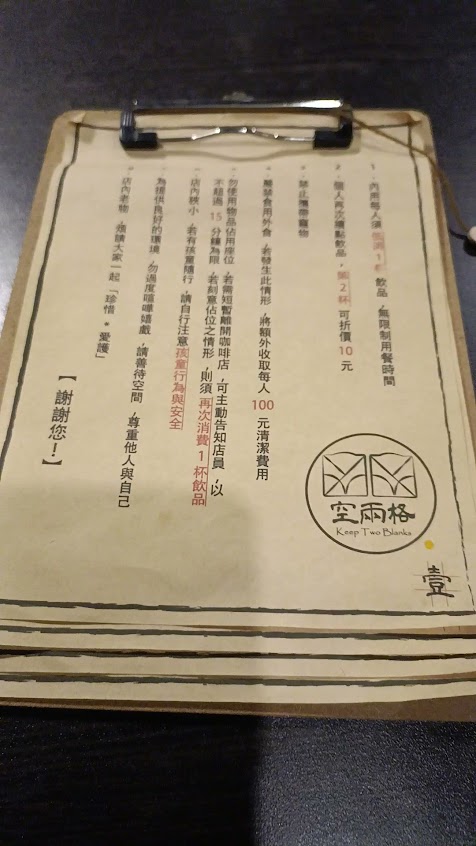 1 、內用每人須低消1杯飲品，無限制用餐時間
2 、個人再次續點飲品，第2杯可折價10元
3 、禁止攜帶寵物
4 、嚴禁食用外食，若發生此情形，將額外收取每人100元清潔費用
、勿使用物品佔用座位，若需短暫離開咖啡店，可主動告知店員，以
不超過15分鐘為限，若刻意佔位之情形，則須再次消費1杯飲品
、店內狹小，若有孩童隨行，請自行注意孩童行為與安全
、為提供良好的環境，勿過度喧嘩嬉戲，請善待空間，尊重他人與自己
、店內老物，煩請大家一起「珍惜*愛護」
【謝謝您！】
空兩格
Keep Two Blanks
壹